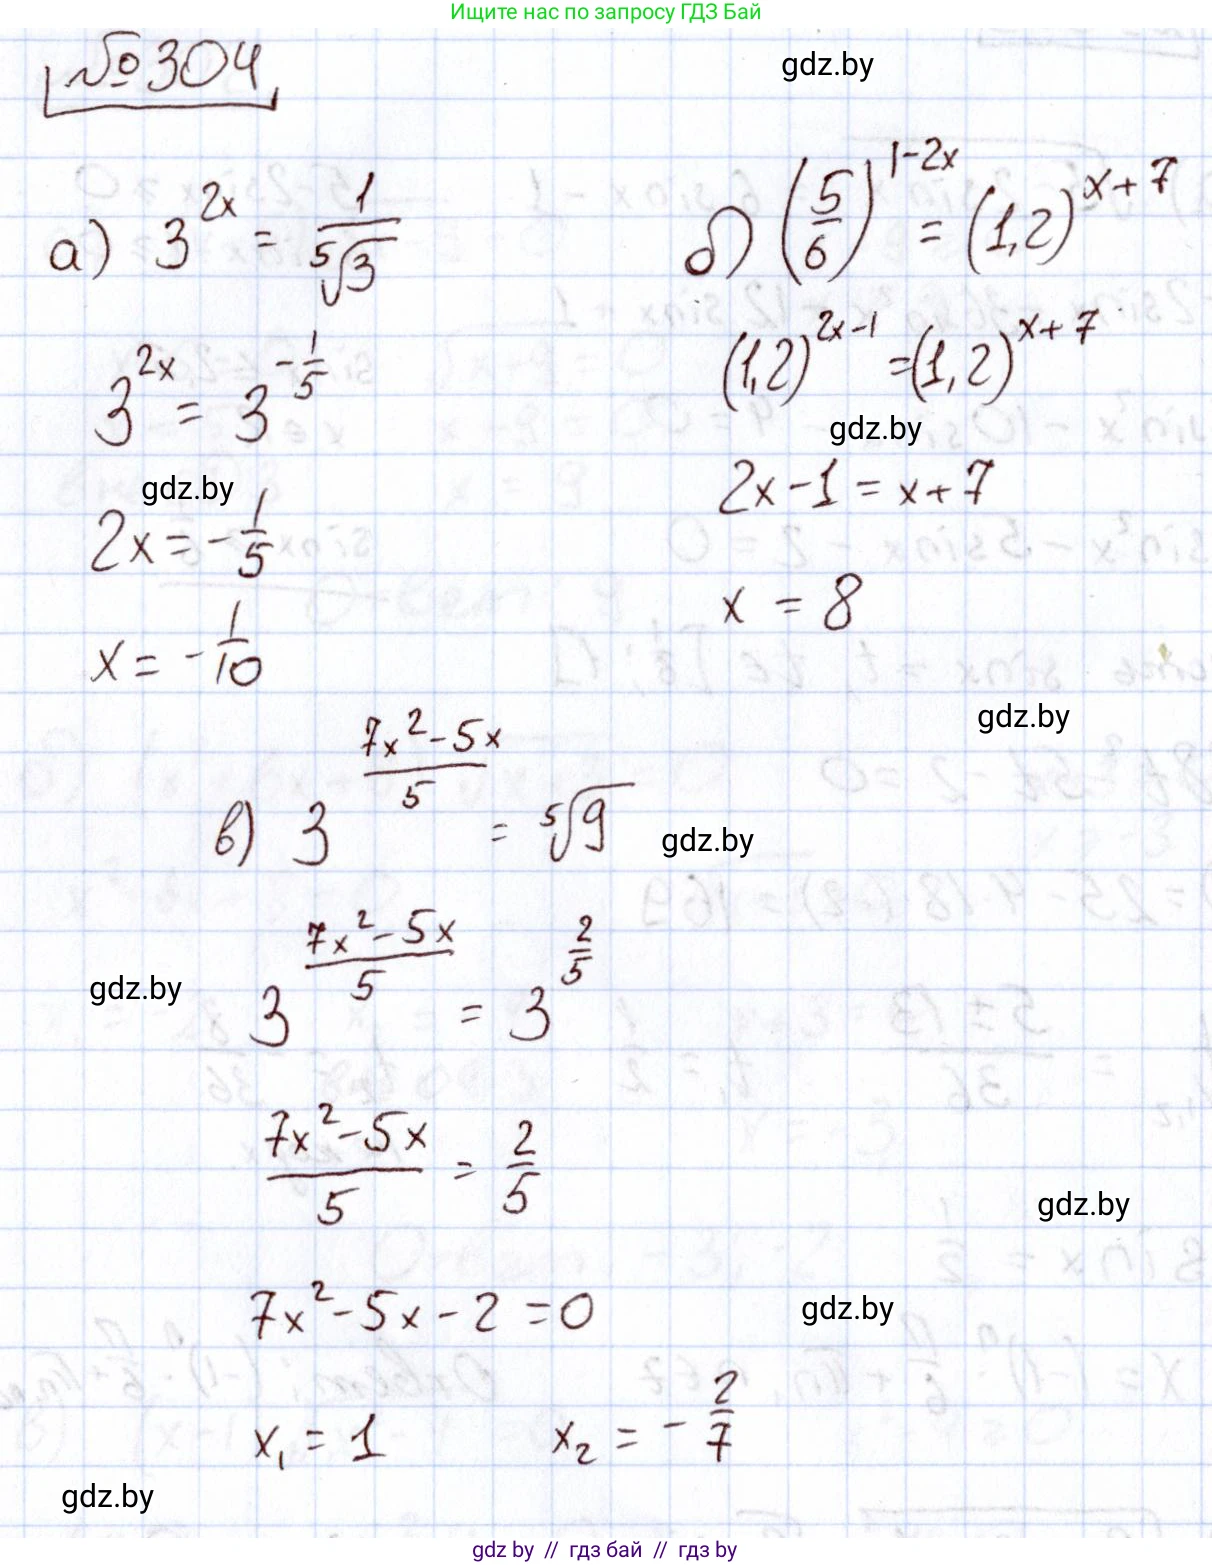 Ищите нас по запросу ГДЗ Бай
№304
gdz.by
а) 3^{2x} = \frac{1}{\sqrt[5]{3}}
3^{2x} = 3^{-\frac{1}{5}}
gdz.by
2x = -\frac{1}{5}
x = -\frac{1}{10}
б) (\frac{5}{6})^{1-2x} = (1,2)^{x+7}
(1,2)^{2x-1} = (1,2)^{x+7}
gdz.by
2x-1 = x+7
x = 8
gdz.by
в) 3^{\frac{7x^2-5x}{5}} = \sqrt[5]{9}
gdz.by
3^{\frac{7x^2-5x}{5}} = 3^{\frac{2}{5}}
gdz.by
\frac{7x^2-5x}{5} = \frac{2}{5}
gdz.by
7x^2-5x-2=0
gdz.by
x_1 = 1 x_2 = -\frac{2}{7}
gdz.by
gdz by // гдз бай // гдз by